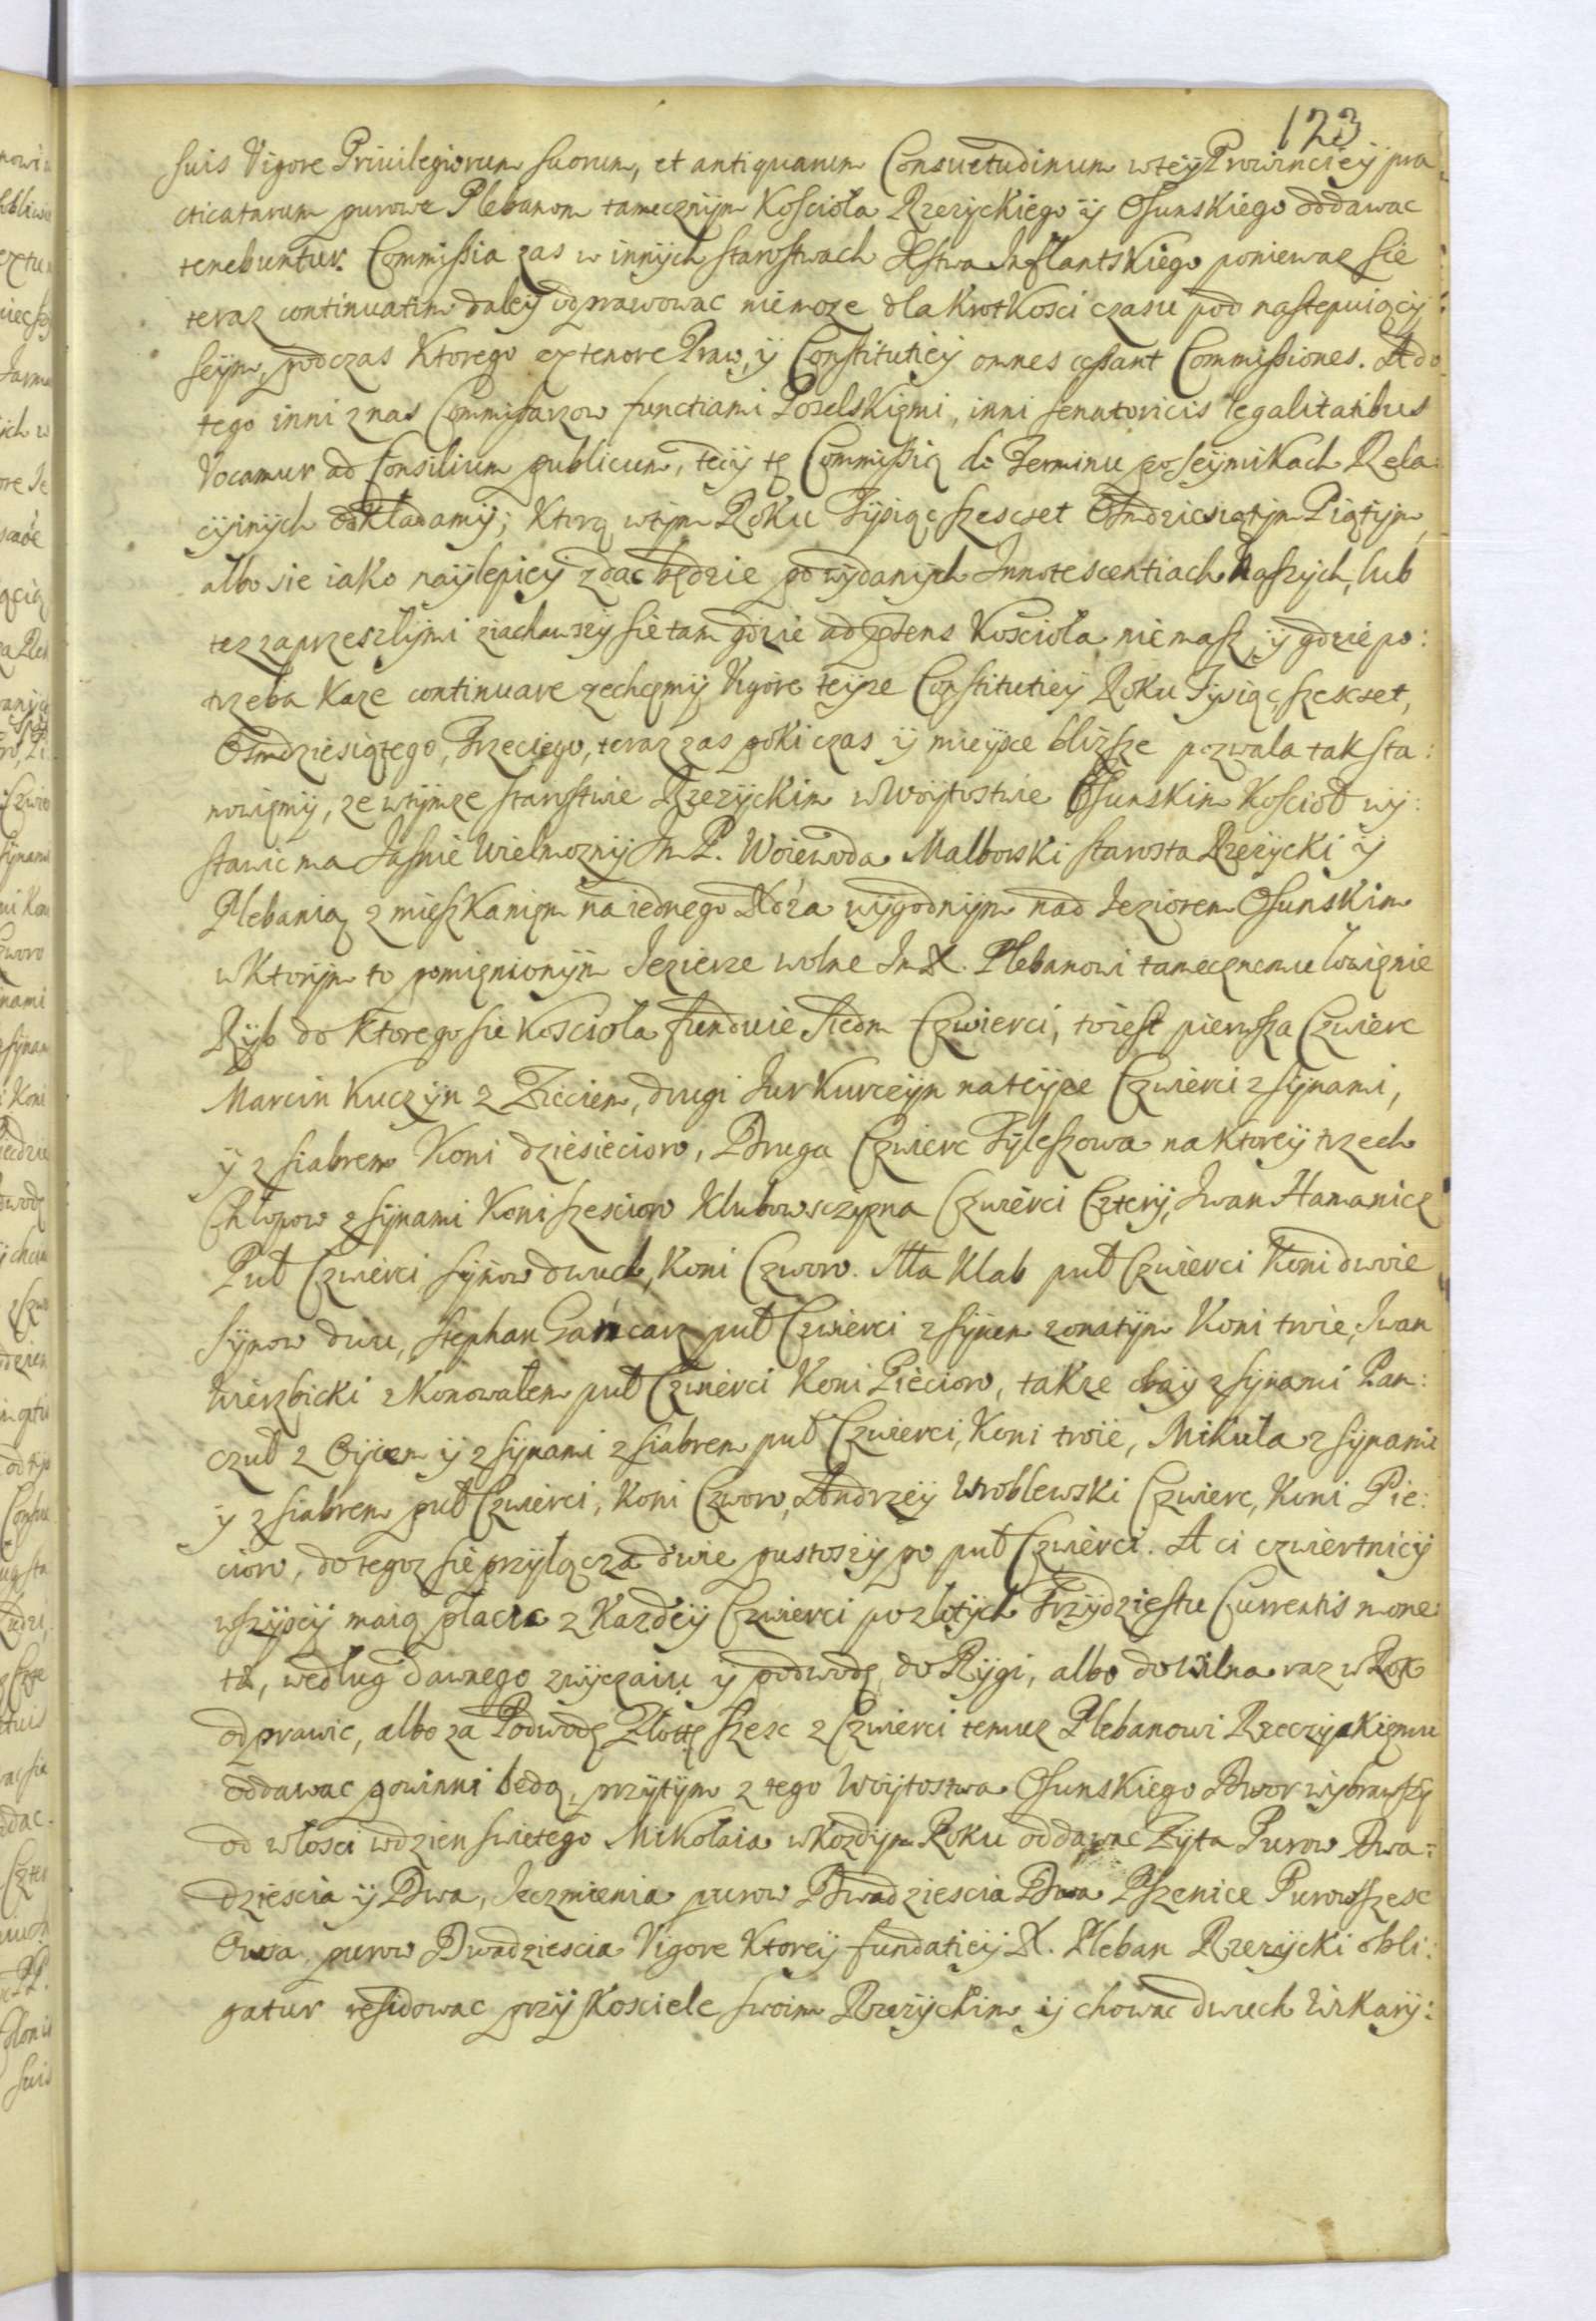 123
suis Vigore Priuilegiorum suorum, et antiquarum Consuetudinum wteÿ Prowinciÿ pra
cticatarum purowe Plebanom tamecznÿm Koscioła Rzezÿckiego ÿ Osunskiego oddawac
tenebuntur. Commissia zas w innÿch starostwach Xstwa Inflantskiego poniewaz sie
teraz continuatim daleÿ odprawowac niemoze dla krotkosci czasu pod nastepuiącÿ
seÿm, podczas ktorego ex tenore Praw, ÿ Constitutieÿ omnes cessant Commissiones. A do
tego inni z nas Commissarzow functiami Poselskiemi, inni senatoricis legalitatibus
Vocamur ad Consilium publicum, teÿ tę Commissią do Terminu po seÿmikach Rela:
cÿinÿch odkładamÿ; ktorą wtÿm Roku Tÿsiąc szescset Osmdziesiątÿm Piątÿm,
albo sie iako naÿlepieÿ zdac będzie po wÿdanÿch Innotescentiach Naszÿch, lub
tez zaprzeszłÿmi ziachawszÿ sie tam gdzie ad Koscioła niemasz, ÿ gdzie po:
trzeba kaze continuare zechcemÿ Vigore teÿze Constitutieÿ Roku Tÿsiąc szescset,
Osmdziesiątego, Trzeciego, teraz zas poki czas ÿ mieÿsce bliższe pozwala tak sta:
nowięmÿ, ze wtÿmze starostwie Rzezÿckim w Woÿtostwie Osunskim Koscioł wÿ:
stawic ma Jasnie Wielmoznÿ Im P. Woiewoda Malborski starosta Rzezÿcki ÿ
Plebanią z mieszkaniem na iednego Xdza wÿgodnÿm nad Jeziorem Osunskim
w ktorÿm to pomienionÿm Jezierze wolne Im X. Plebanowi tamecznemu łowięnie
Rÿb do ktorego sie koscioła funduie siedm Czwierci, to iest pierwsza Czwierc
Marcin Kuczÿn z Zieciem, drugi Jur Kurczÿn na teÿze Czwierci z sÿnami,
ÿ z siabrem Koni dziesiecioro, Druga Czwierc Tÿleszowa na ktoreÿ trzech
Chłopow z sÿnami Koni szescioro Klubowsczÿzna Czwierci Czterÿ, Iwan Hamanicz
Puł Czwierci sÿnow dwuch, Koni Czworo. Klab puł Czwierci Koni dwoie
sÿnow dwu, Stephan Gańcarz puł Czwierci z sÿnem zonatÿm Koni troie, Iwan
Wierzbicki z Konowałem puł Czwierci Koni Piecioro, takze obaÿ z sÿnami Pan:
czuł z Oÿcem ÿ z sÿnami z siabrem puł Czwierci, Koni troie, Mikuła z sÿnami
ÿ z siabrem puł Czwierci, Koni Czworo, Andrzeÿ Wroblewski Czwierc, Koni Pie:
cioro, do tegoz sie przÿłącza dwie pustoszÿ po puł Czwierci. A ci czwiertnicÿ
wszÿscÿ maią płacic z kazdeÿ Czwierci po złotÿch Trzÿdziestu Currentis mone
tæ, według dawnego zwÿczaiu ÿ podwodę do Rÿgi, albo do Wilna raz w Rok
odprawic, albo za Podwodę Złotÿ szesc z Czwierci temuz Plebanowi Rzezÿckiemu
oddawac powinni będą, przÿtÿm z tego Woÿtostwa Osunskiego Dwor wÿbrawszÿ
od włosci wdzien swietego Mikołaia w kozdÿm Roku oddawac Zÿta Purow Dwa:
dziescia ÿ Dwa, Jeczmienia purow Dwadziescia Dwa Pszenice Purow szesc
Owsa purow Dwadziescia Vigore ktoreÿ fundatieÿ X. Pleban Rzezÿcki obli:
gatur residowac przÿ Kosciele swoim Rzezÿckim ÿ chowac dwuch Wikarÿ: